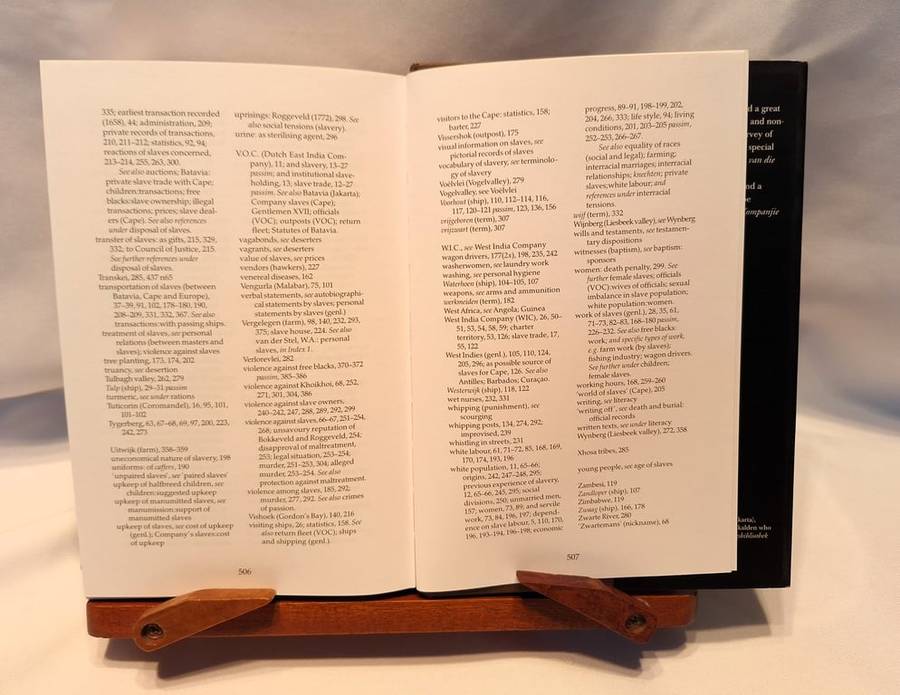 335; earliest transaction recorded
(1658), 44; administration, 209;
private records of transactions,
210, 211–212; statistics, 92, 94;
reactions of slaves concerned,
213–214, 255, 263, 300.
See also auctions; Batavia:
private slave trade with Cape;
children:transactions; free
blacks:slave ownership; illegal
transactions; prices; slave deal-
ers (Cape). See also references
under disposal of slaves.
transfer of slaves: as gifts, 215, 329,
332; to Council of Justice, 215.
See further references under
disposal of slaves.
Transkei, 285, 437 n65
transportation of slaves (between
Batavia, Cape and Europe),
37–39, 91, 102, 178–180, 190,
208–209, 331, 332, 367. See also
transactions:with passing ships.
treatment of slaves, see personal
relations (between masters and
slaves); violence against slaves
tree planting, 173, 174, 202
truancy, see desertion
Tulbagh valley, 262, 279
Tulp (ship), 29–31 passim
turmeric, see under rations
Tuticorin (Coromandel), 16, 95, 101,
101–102
Tygerberg, 63, 67–68, 69, 97, 200, 223,
242, 273
Uitwijk (farm), 358–359
uneconomical nature of slavery, 198
uniforms: of caffers, 190
'unpaired slaves', see 'paired slaves'
upkeep of halfbreed children, see
children:suggested upkeep
upkeep of manumitted slaves, see
manumission:support of
manumitted slaves
upkeep of slaves, see cost of upkeep
(genl.); Company's slaves:cost
of upkeep
uprisings: Roggeveld (1772), 298. See
also social tensions (slavery).
urine: as sterilising agent, 296
V.O.C. (Dutch East India Com-
pany), 11; and slavery, 13–27
passim; and institutional slave-
holding, 13; slave trade, 12–27
passim. See also Batavia (Jakarta);
Company slaves (Cape);
Gentlemen XVII; officials
(VOC); outposts (VOC); return
fleet; Statutes of Batavia.
vagabonds, see deserters
vagrants, see deserters
value of slaves, see prices
vendors (hawkers), 227
venereal diseases, 162
Vengurla (Malabar), 75, 101
verbal statements, see autobiographi-
cal statements by slaves; personal
statements by slaves (genl.)
Vergelegen (farm), 98, 140, 232, 293,
375; slave house, 224. See also
van der Stel, W.A.: personal
slaves, in Index 1.
Verlorevlei, 282
violence against free blacks, 370–372
passim, 385–386
violence against Khoikhoi, 68, 252,
271, 301, 304, 386
violence against slave owners,
240–242, 247, 288, 289, 292, 299
violence against slaves, 66–67, 251–254,
268; unsavoury reputation of
Bokkeveld and Roggeveld, 254;
disapproval of maltreatment,
253; legal situation, 253–254;
murder, 251–253, 304; alleged
murder, 253–254. See also
protection against maltreatment.
violence among slaves, 185, 292;
murder, 277, 292. See also crimes
of passion.
Vishoek (Gordon's Bay), 140, 216
visiting ships, 26; statistics, 158. See
also return fleet (VOC); ships
and shipping (genl.).
506
visitors to the Cape: statistics, 158;
barter, 227
Vissershok (outpost), 175
visual information on slaves, see
pictorial records of slaves
vocabulary of slavery, see terminolo-
gy of slavery
Voëlvlei (Vogelvalley), 279
Vogelvalley, see Voëlvlei
Voorhout (ship), 110, 112–114, 116,
117, 120–121 passim, 123, 136, 156
vrijgeboren (term), 307
vrijzwart (term), 307
W.I.C., see West India Company
wagon drivers, 177(2x), 198, 235, 242
washerwomen, see laundry work
washing, see personal hygiene
Waterhoen (ship), 104–105, 107
weapons, see arms and ammunition
werkmeiden (term), 182
West Africa, see Angola; Guinea
West India Company (WIC), 26, 50–
51, 53, 54, 58, 59; charter
territory, 53, 126; slave trade, 17,
55, 122
West Indies (genl.), 105, 110, 124,
205, 296; as possible source of
slaves for Cape, 126. See also
Antilles; Barbados; Curaçao.
Westerwijk (ship), 118, 122
wet nurses, 232, 331
whipping (punishment), see
scourging
whipping posts, 134, 274, 292,
improvised, 239
whistling in streets, 231
white labour, 61, 71–72, 85, 168, 169,
170, 174, 193, 196
white population, 11, 65–66;
origins, 242, 247–248, 295;
previous experience of slavery,
12, 65–66, 245, 295; social
divisions, 250; unmarried men,
157; women, 73, 89, and servile
work, 73, 84, 196, 197; depend-
ence on slave labour, 5, 110, 170,
196, 193–194, 196–198; economic
progress, 89–91, 198–199, 202,
204, 266, 333; life style, 94; living
conditions, 201, 203–205 passim,
252–253, 266–267.
See also equality of races
(social and legal); farming;
interracial marriages; interracial
relationships; knechten; private
slaves;white labour; and
references under interracial
tensions.
wijf (term), 332
Wijnberg (Liesbeek valley), see Wynberg
wills and testaments, see testamen-
tary dispositions
witnesses (baptism), see baptism:
sponsors
women: death penalty, 299. See
further female slaves; officials
(VOC):wives of officials; sexual
imbalance in slave population;
white population:women.
work of slaves (genl.), 28, 35, 61,
71–73, 82–83, 168–180 passim,
226–232. See also free blacks:
work; and specific types of work,
e.g. farm work (by slaves);
fishing industry; wagon drivers.
See further under children;
female slaves.
working hours, 168, 259–260
'world of slaves' (Cape), 205
writing, see literacy
'writing off', see death and burial:
official records
written texts, see under literacy
Wynberg (Liesbeek valley), 272, 358
Xhosa tribes, 285
young people, see age of slaves
Zambesi, 119
Zandloper (ship), 107
Zimbabwe, 119
Zwaag (ship), 166, 178
Zwarte River, 280
'Zwartemans' (nickname), 68
507
d a great
and non-
rvey of
special
van die
nd a
ompanjie
karta),
kalden who
sbibliothek